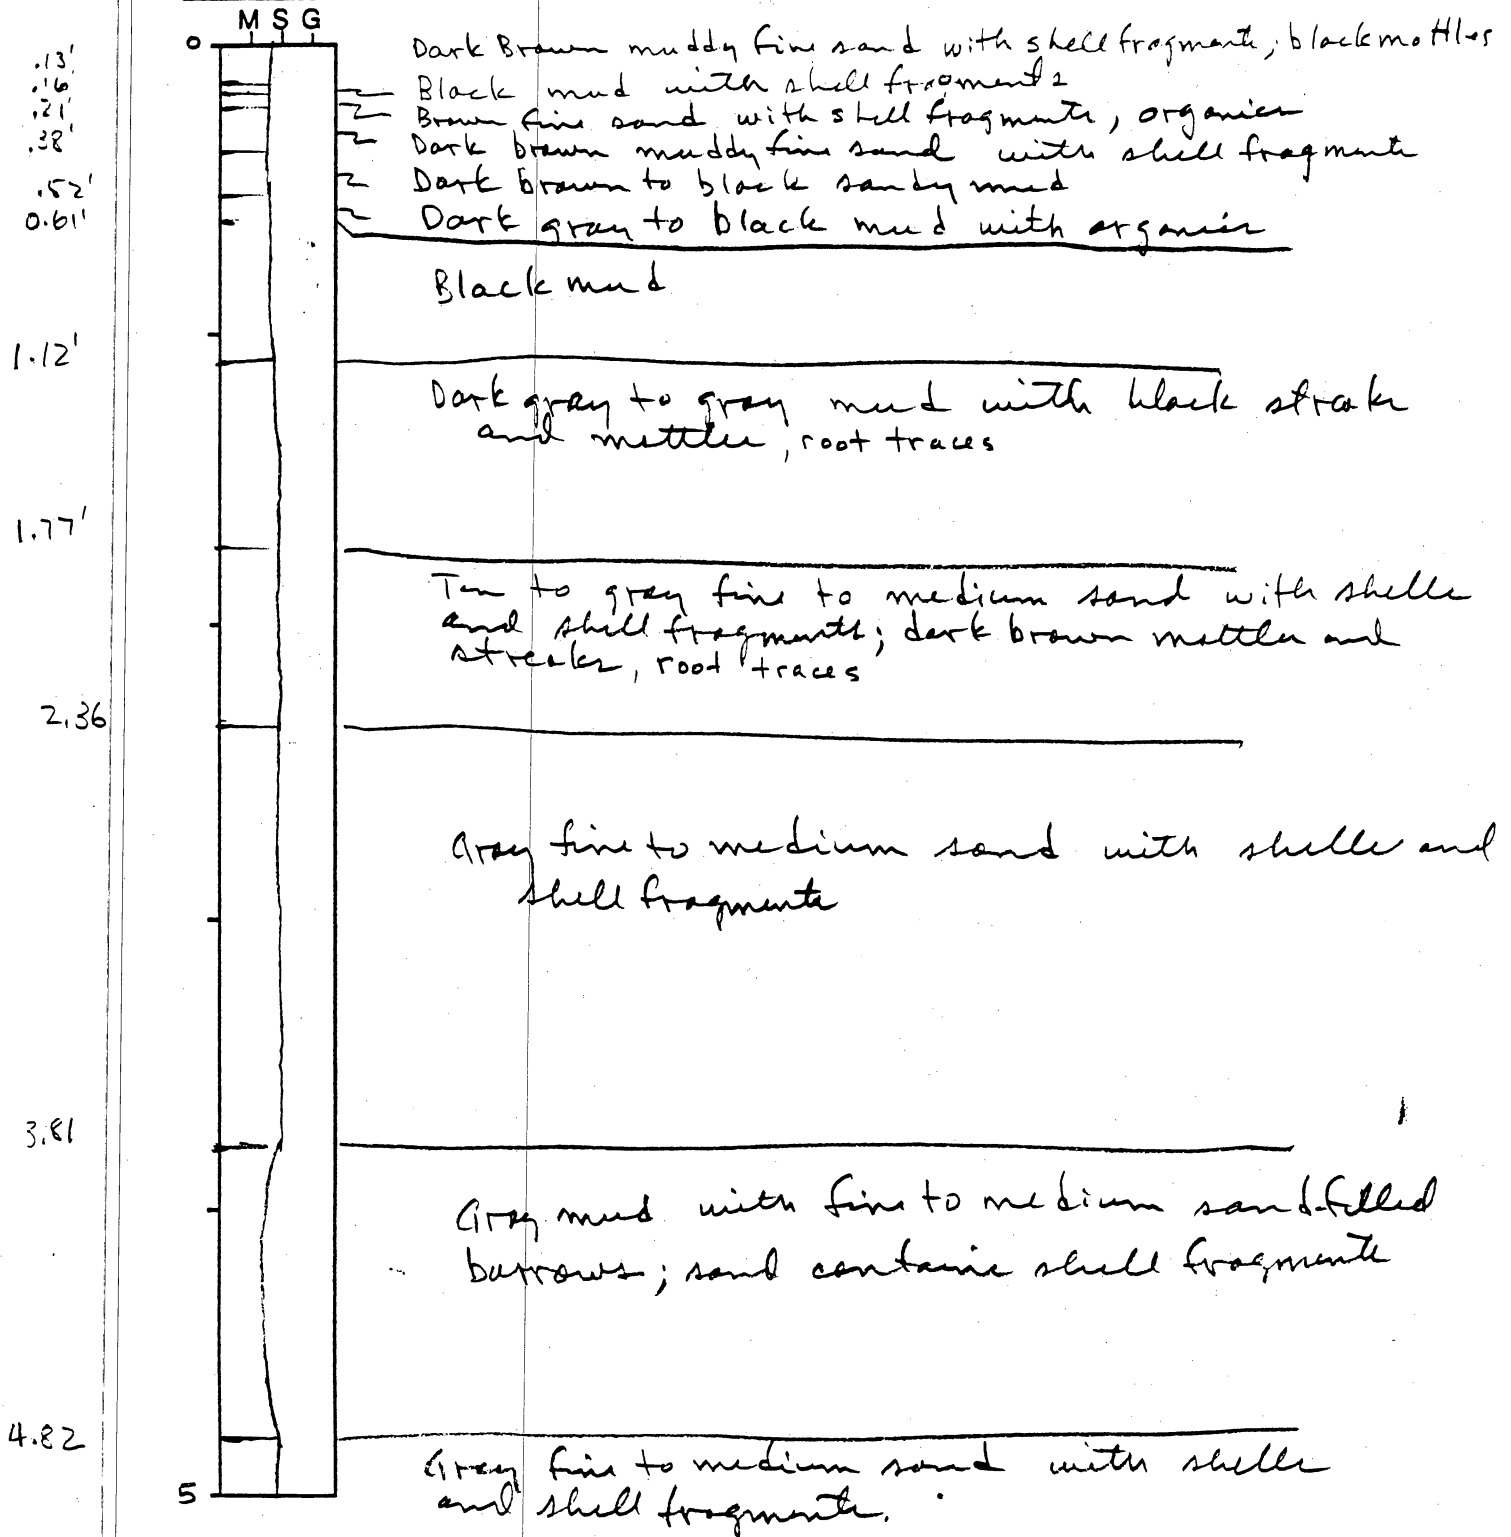 M S G
0
Dark Brown muddy fine sand with shell fragments, black mottles
.13'
.16'
Black mud with shell fragments
.21'
Brown fine sand with shell fragments, organics
.38'
Dark brown muddy fine sand with shell fragments
.52'
Dark brown to black sandy mud
0.61'
Dark gray to black mud with organics
Black mud
1.12'
Dark gray to gray mud with black streaks
and mottles, root traces
1.77'
Tan to gray fine to medium sand with shells
and shell fragments; dark brown mottles and
streaks, root traces
2.36
Gray fine to medium sand with shells and
shell fragments
3.81
Gray mud with fine to medium sand-filled
burrows; sand contains shell fragments
4.82
Gray fine to medium sand with shells
5
and shell fragments.